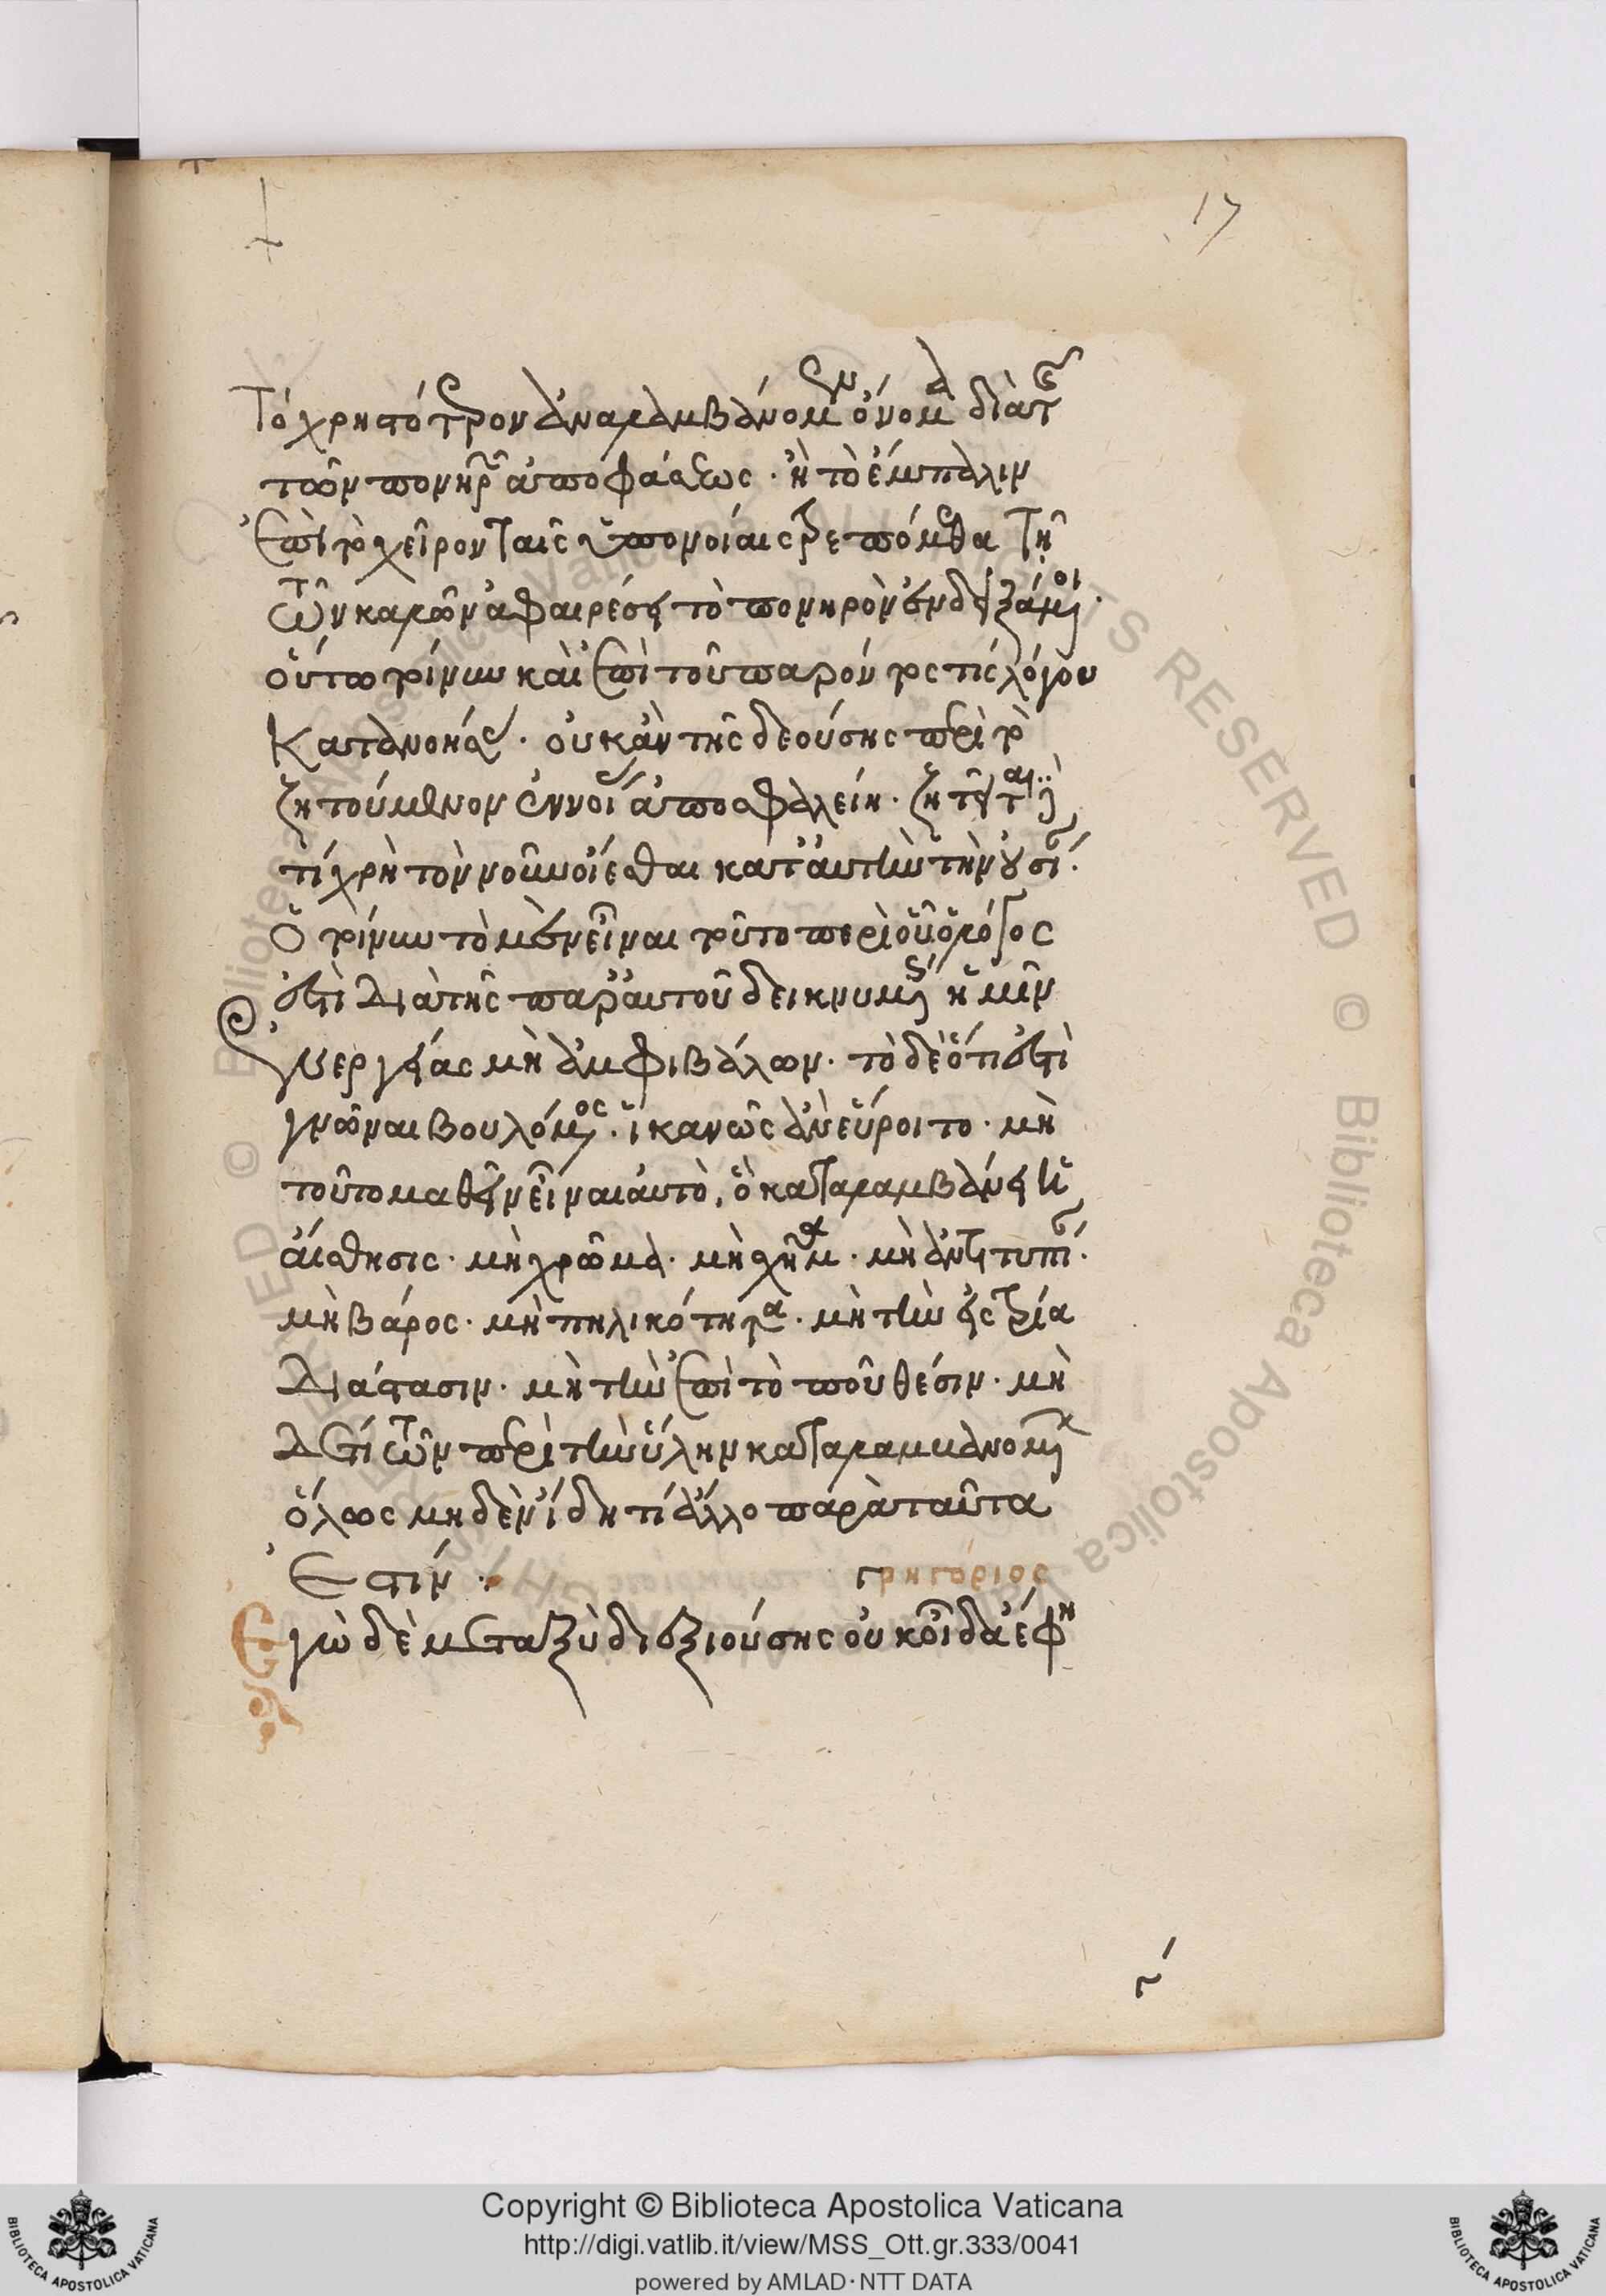 17
Τὸ χρηστότερον ἀναλαμβάνομεν ὄνομα διὰ τῆς
τῶν πονηρῶν ἀποφάσεως · ἢ τὸ ἔμπαλιν
ἐπὶ τὸ χεῖρον ταῖς ὑπονοίαις τρεπόμεθα τῇ
τῶν καλῶν ἀφαιρέσει τὸ πονηρὸν ἐνδειξάμενοι ·
οὕτω τοίνυν καὶ ἐπὶ τοῦ παρόντός τις λόγου
κατανοήσας · οὐκ ἂν τῆς δεούσης περὶ τὸ
ζητούμενον ἐννοίας ἀποσφαλείη · ζητεῖται
τί χρὴ τὸν νοῦν οἴεσθαι κατ' αὐτὴν τὴν οὐσίαν ·
Ὁ τοίνυν τὸ μὲν εἶναι τοῦτο περὶ οὗ ὁ λόγος
ἐστὶ διὰ τῆς παρ' αὐτοῦ δεικνυμένης ἡμῖν
ἐνεργείας μὴ ἀμφιβάλων · τὸ δὲ ὅ τι ἐστὶ
γνῶναι βουλόμενος · ἱκανῶς ἀνεύροιτο · μὴ
τοῦτο μαθεῖν εἶναι αὐτὸ, ὃ καταλαμβάνει ἡ
αἴσθησις · μὴ χρῶμα · μὴ σχῆμα · μὴ ἀντιτυπίαν ·
μὴ βάρος · μὴ πηλικότητα · μὴ τὴν εἰς τρία
διάστασιν · μὴ τὴν ἐπὶ τὸ ποῦ θέσιν · μὴ
δέ τι τῶν περὶ τὴν ὕλην καταλαμβανομένων
ὅλως μηδὲν εἰ δή τι ἄλλο παρὰ ταῦτα
ἐστίν · Γρηγόριος
Ἐγὼ δὲ μεταξὺ διεξιούσης οὐκ οἶδα ἔφην
Copyright © Biblioteca Apostolica Vaticana
http://digi.vatlib.it/view/MSS_Ott.gr.333/0041
powered by AMLAD·NTT DATA